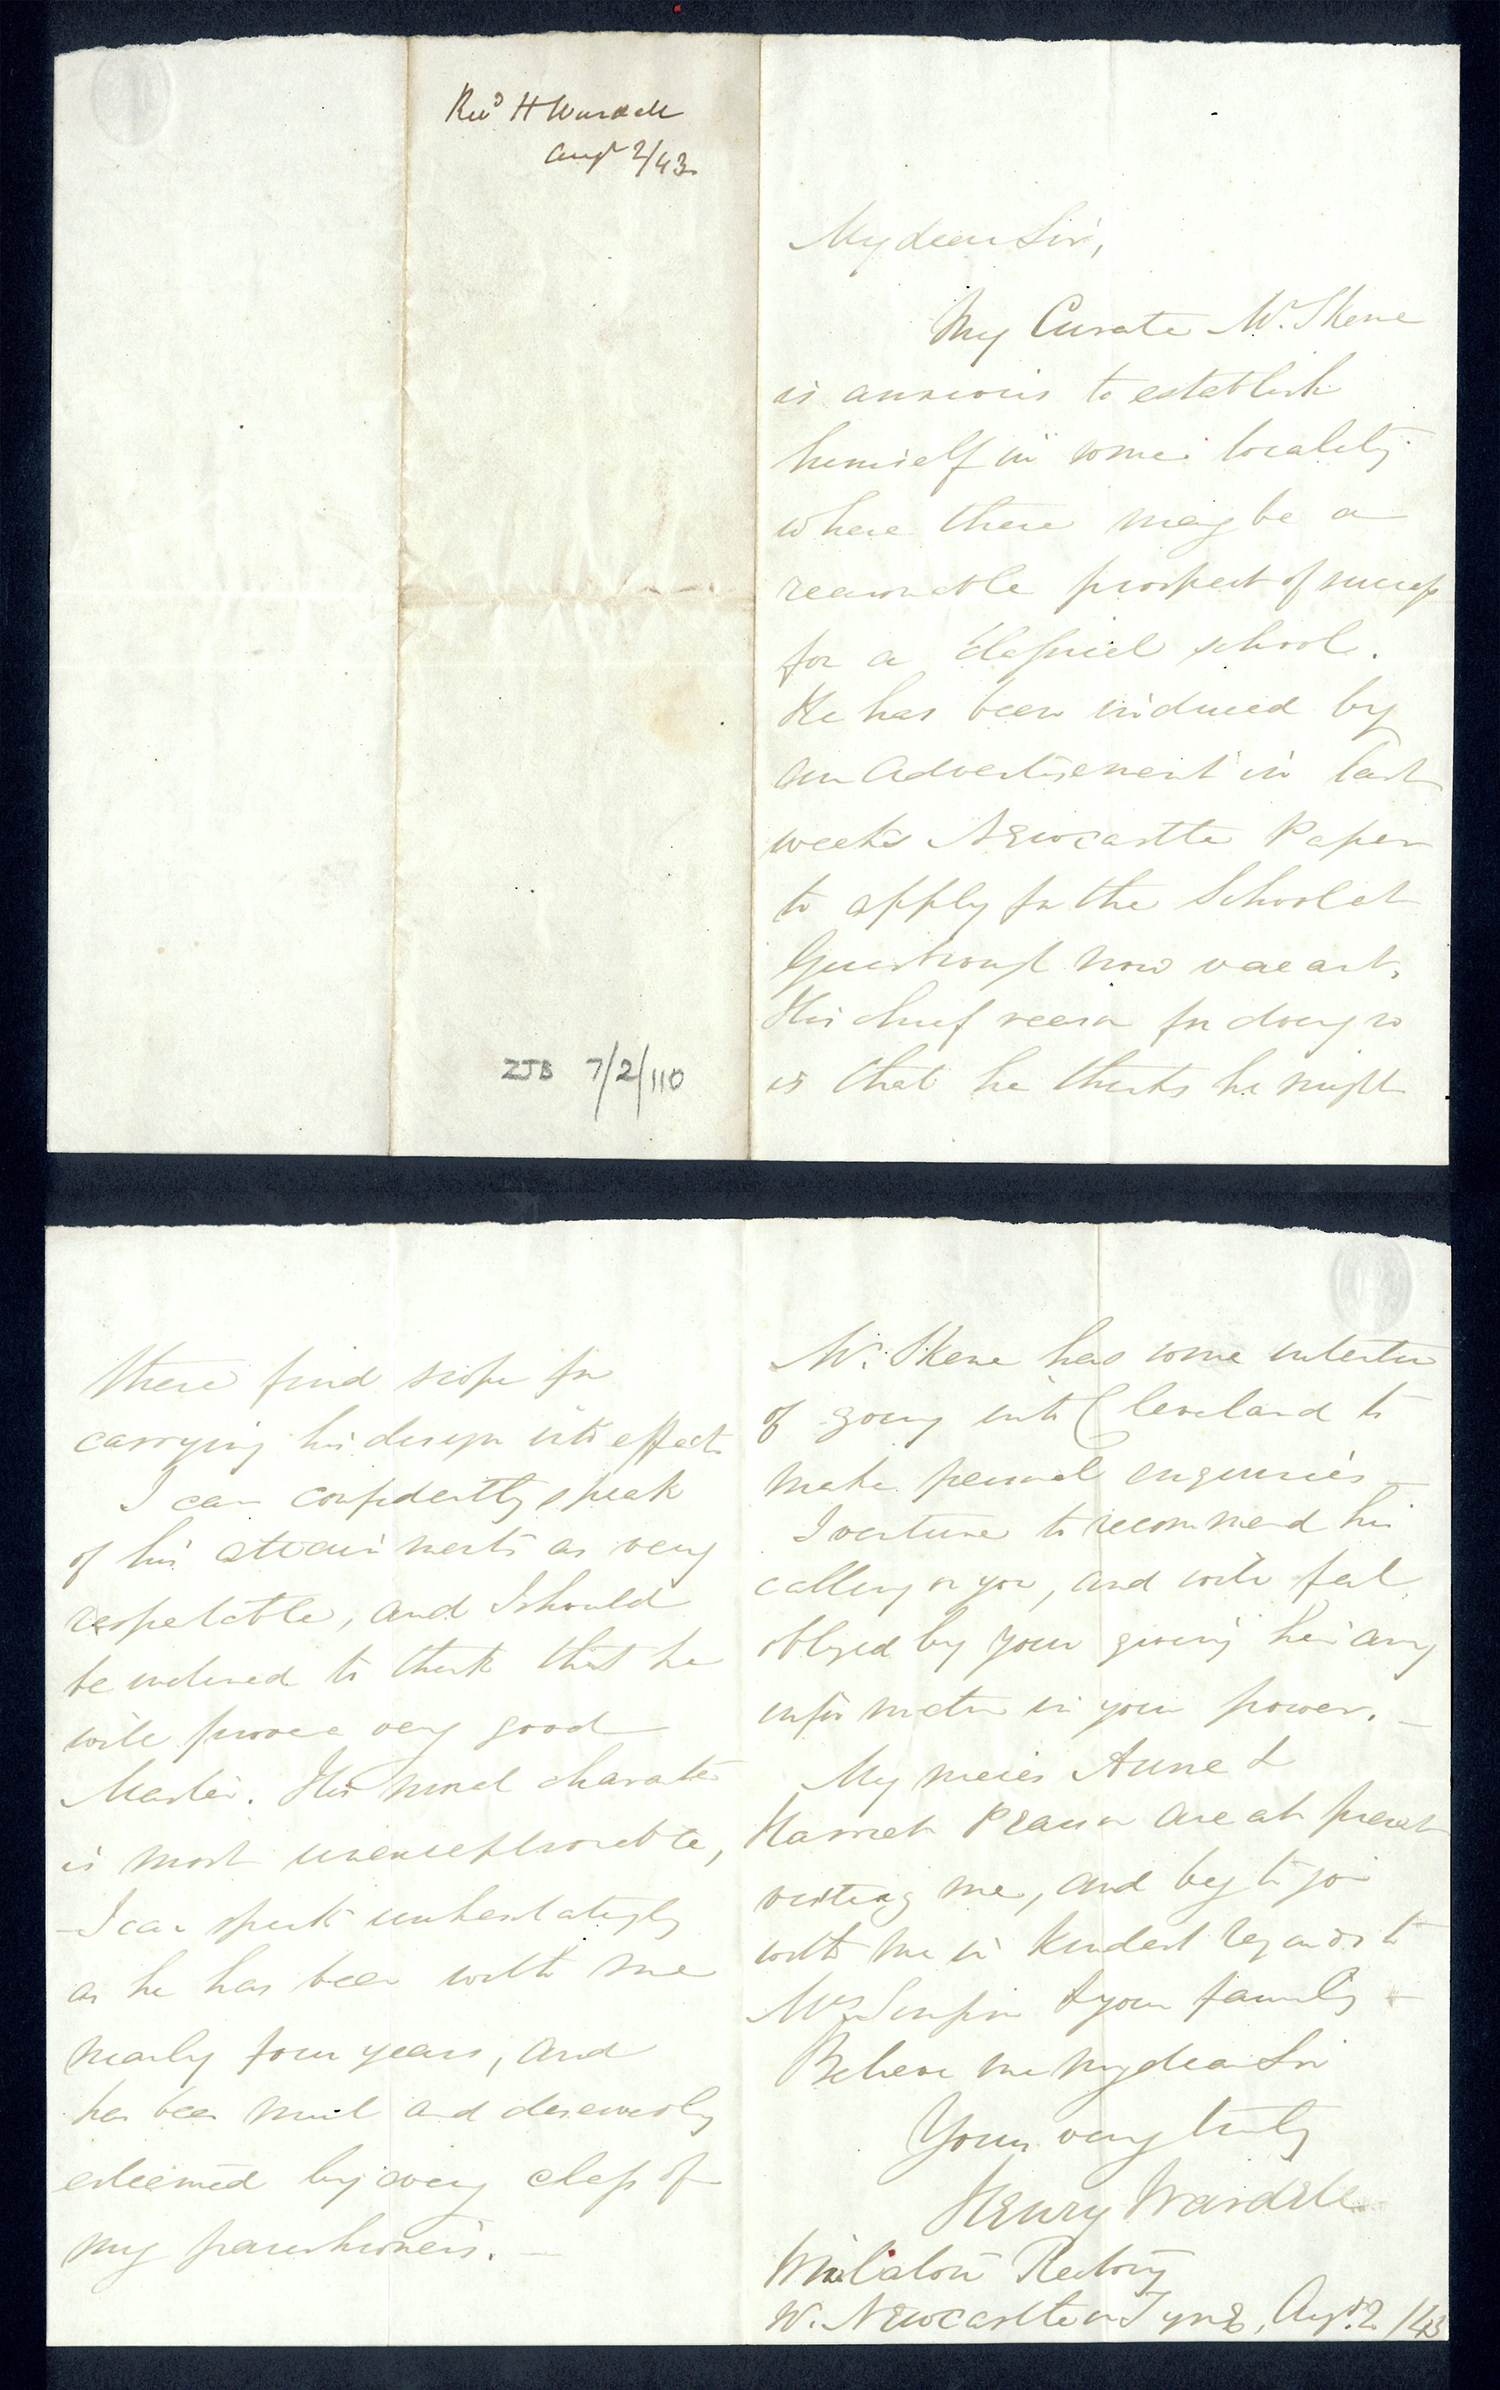 Revd H Wardell
Augt 2/43
ZJB 7/2/110
My dear Sir,
My Curate Mr. Skene
is anxious to establish
himself in some locality
where there may be a
reasonable prospect of success
for a Classical school.
He has been induced by
an Advertisement in last
weeks Newcastle Paper
to apply for the School at
Guisbrough now vacant,
His chief reason for doing so
is that he thinks he might
there find scope for
carrying his design into effect
I can confidently speak
of his attainments as very
respectable, and I should
be inclined to think that he
will prove a very good
Master. His moral character
is most unexceptionable,
- I can speak unhesitatingly
as he has been with me
nearly four years, and
has been much and deservedly
esteemed by every class of
my parishioners. -
Mr. Skene has some intention
of going into Cleveland to
make personal enquiries -
I venture to recommend his
calling on you, and will feel
obliged by your giving him any
information in your power. -
My nieces Anne &
Harriet are at present
visiting me, and beg to join
with me in kindest regards to
Mrs & your family -
Believe me my dear Sir
Yours very truly
Henry Wardell
Winlaton Rectory
W. Newcastle on Tyne, Augst. 2/43